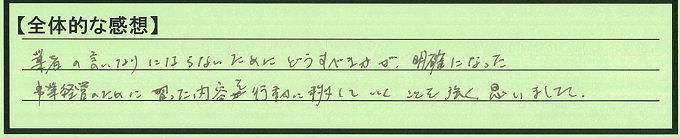 【全体的な感想】
業者の言いなりにはならないためにどうすべきかが、明確になった
事業経営のために習った内容を行動に移していくことを強く思いました。